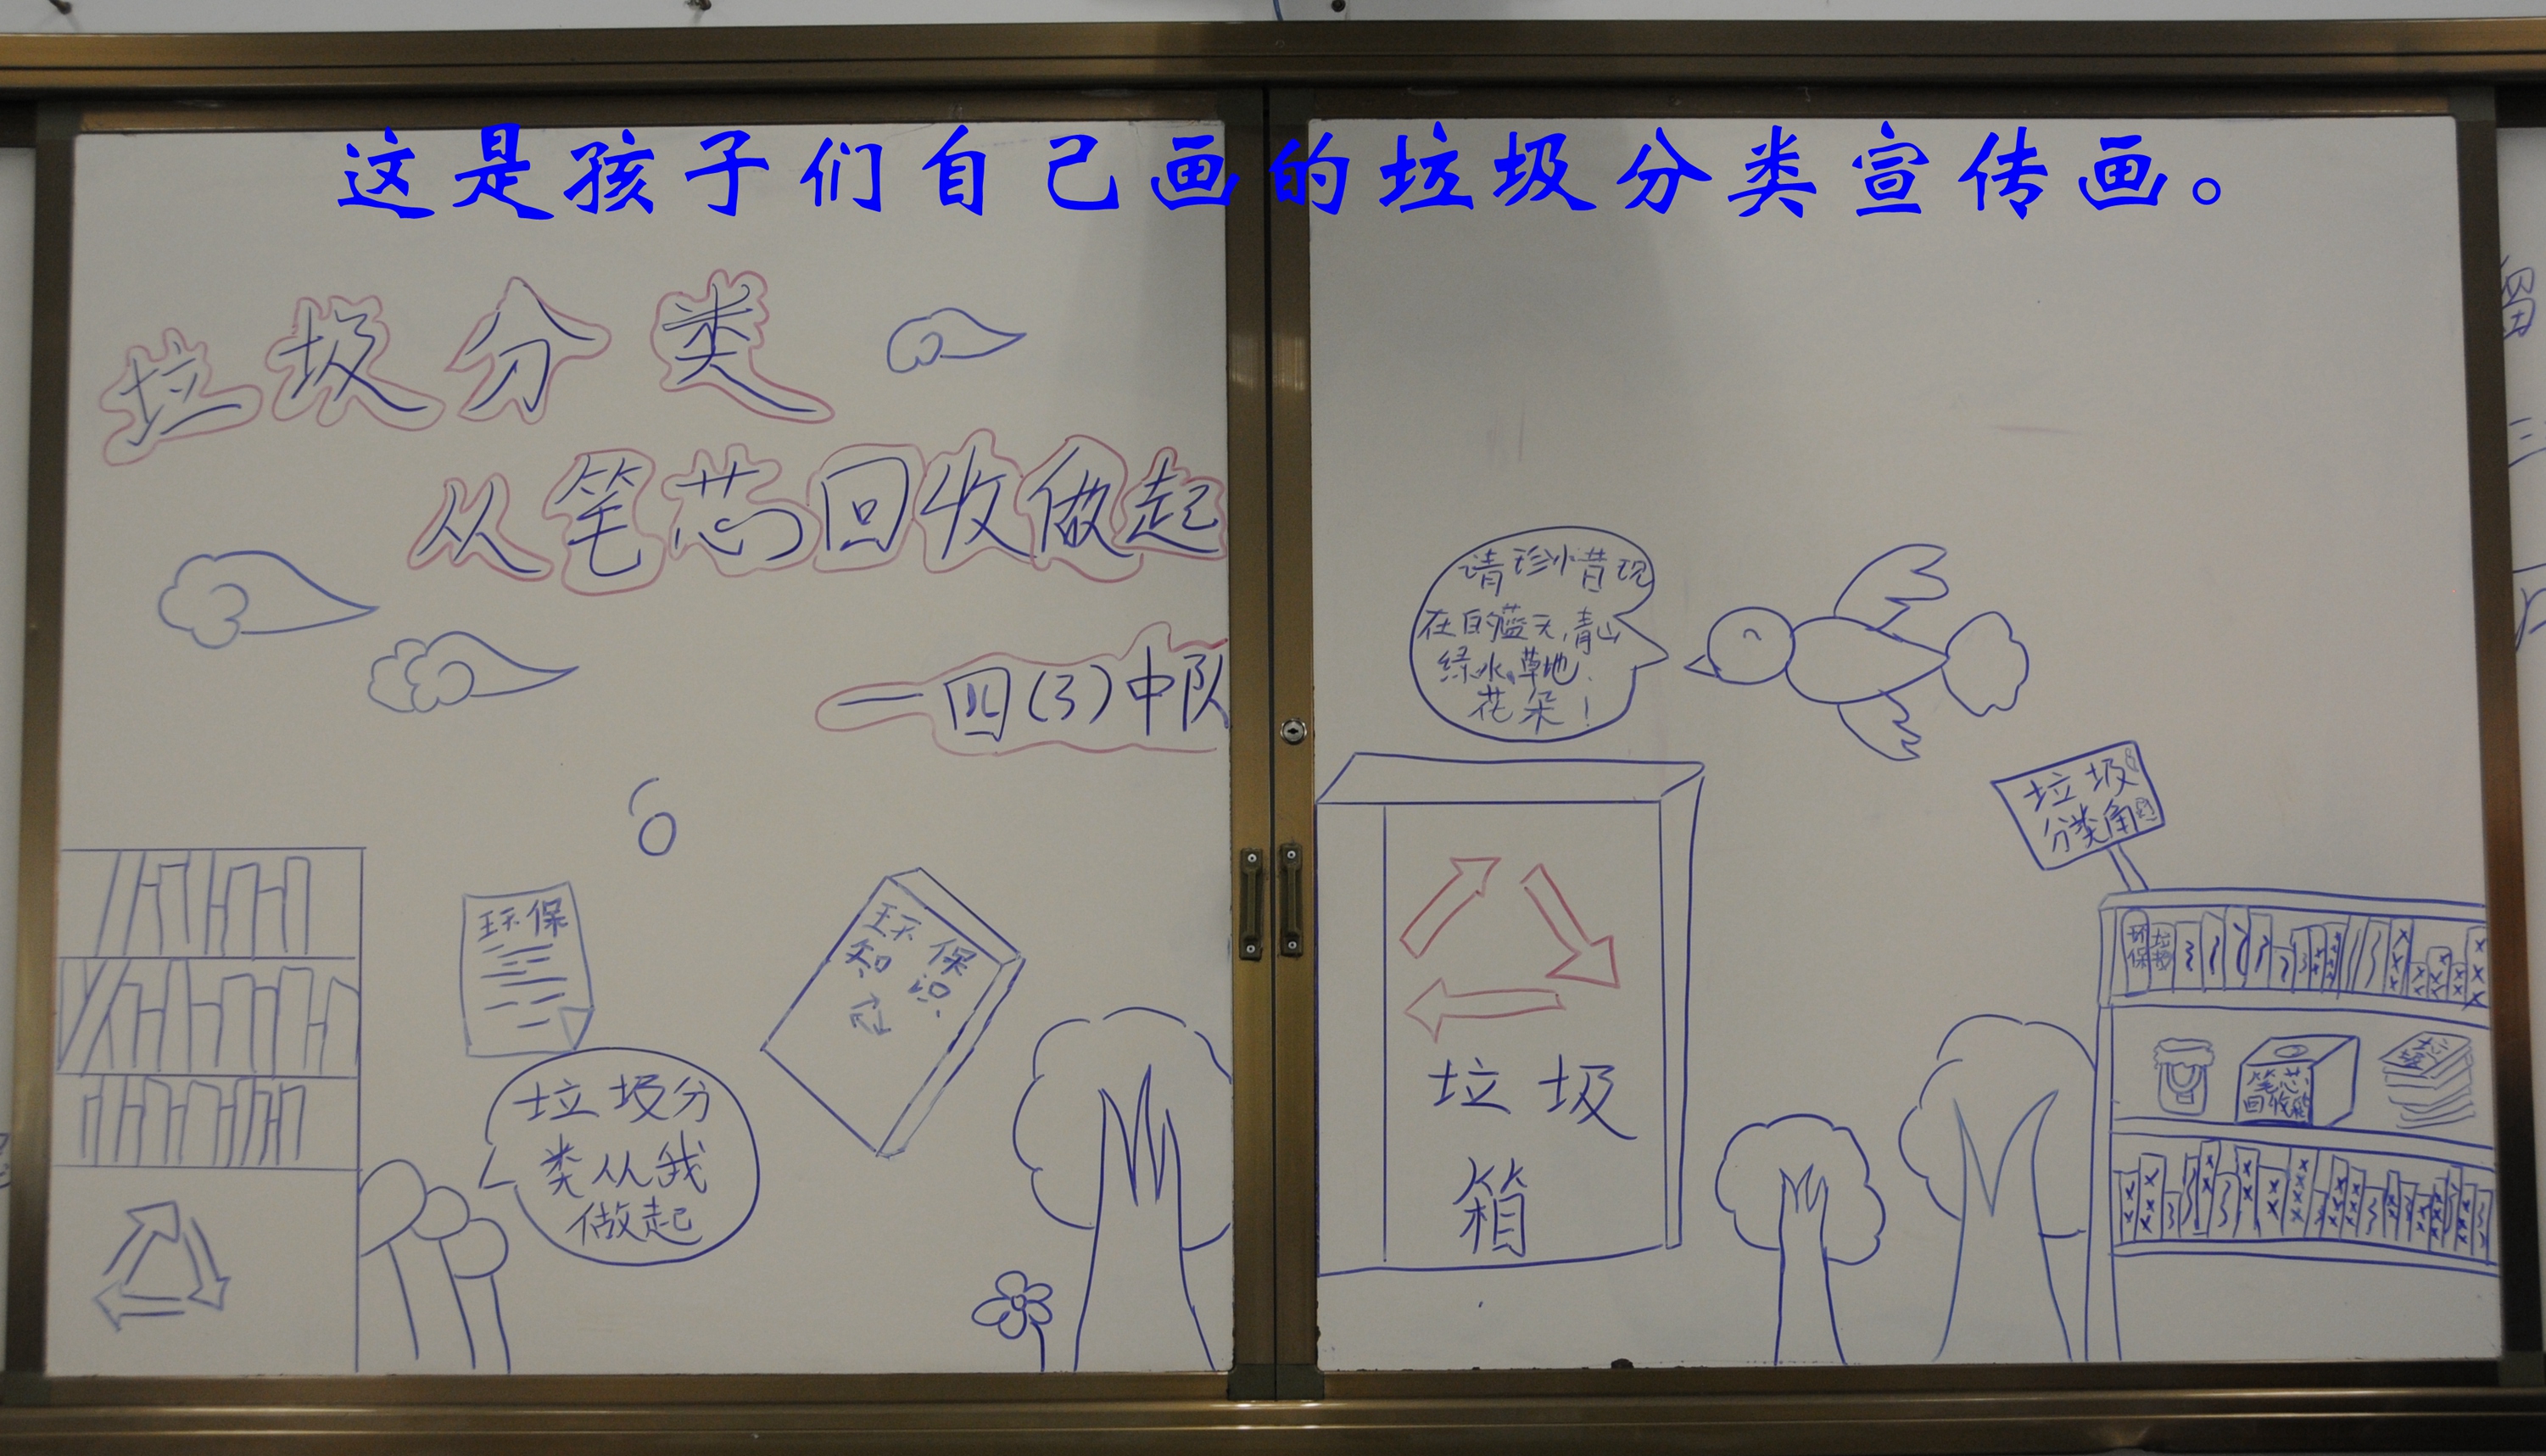 这是孩子们自己画的垃圾分类宣传画。
垃圾分类
从笔芯回收做起
一四(3)中队
环保
环保
知识
垃圾分
类从我
做起
请珍惜现
在的蓝天,青山
绿水、草地、
花朵!
垃圾
箱
垃圾
分类角
环保
垃圾
笔芯
回收箱